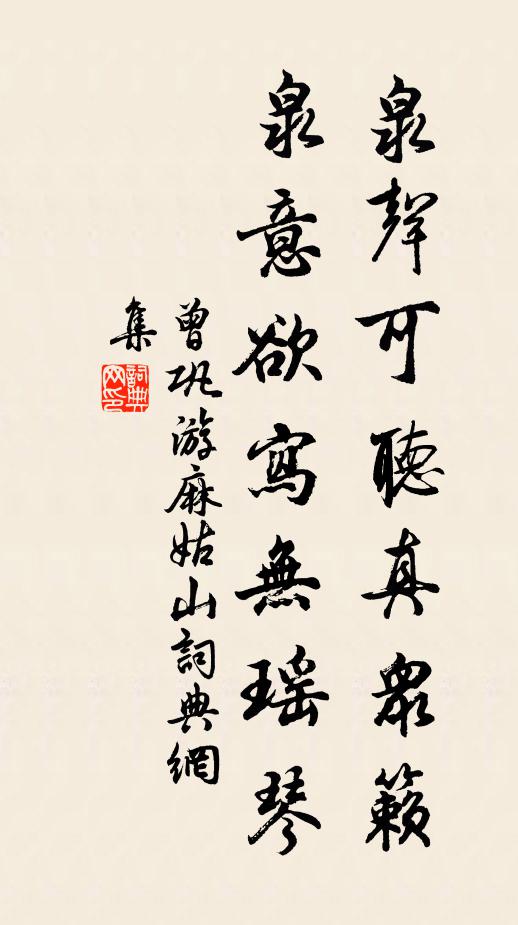 泉聲可聽真衆籟
泉意欲寫無瑶琴
曾巩游麻姑山詞典網
集
詞典
网印